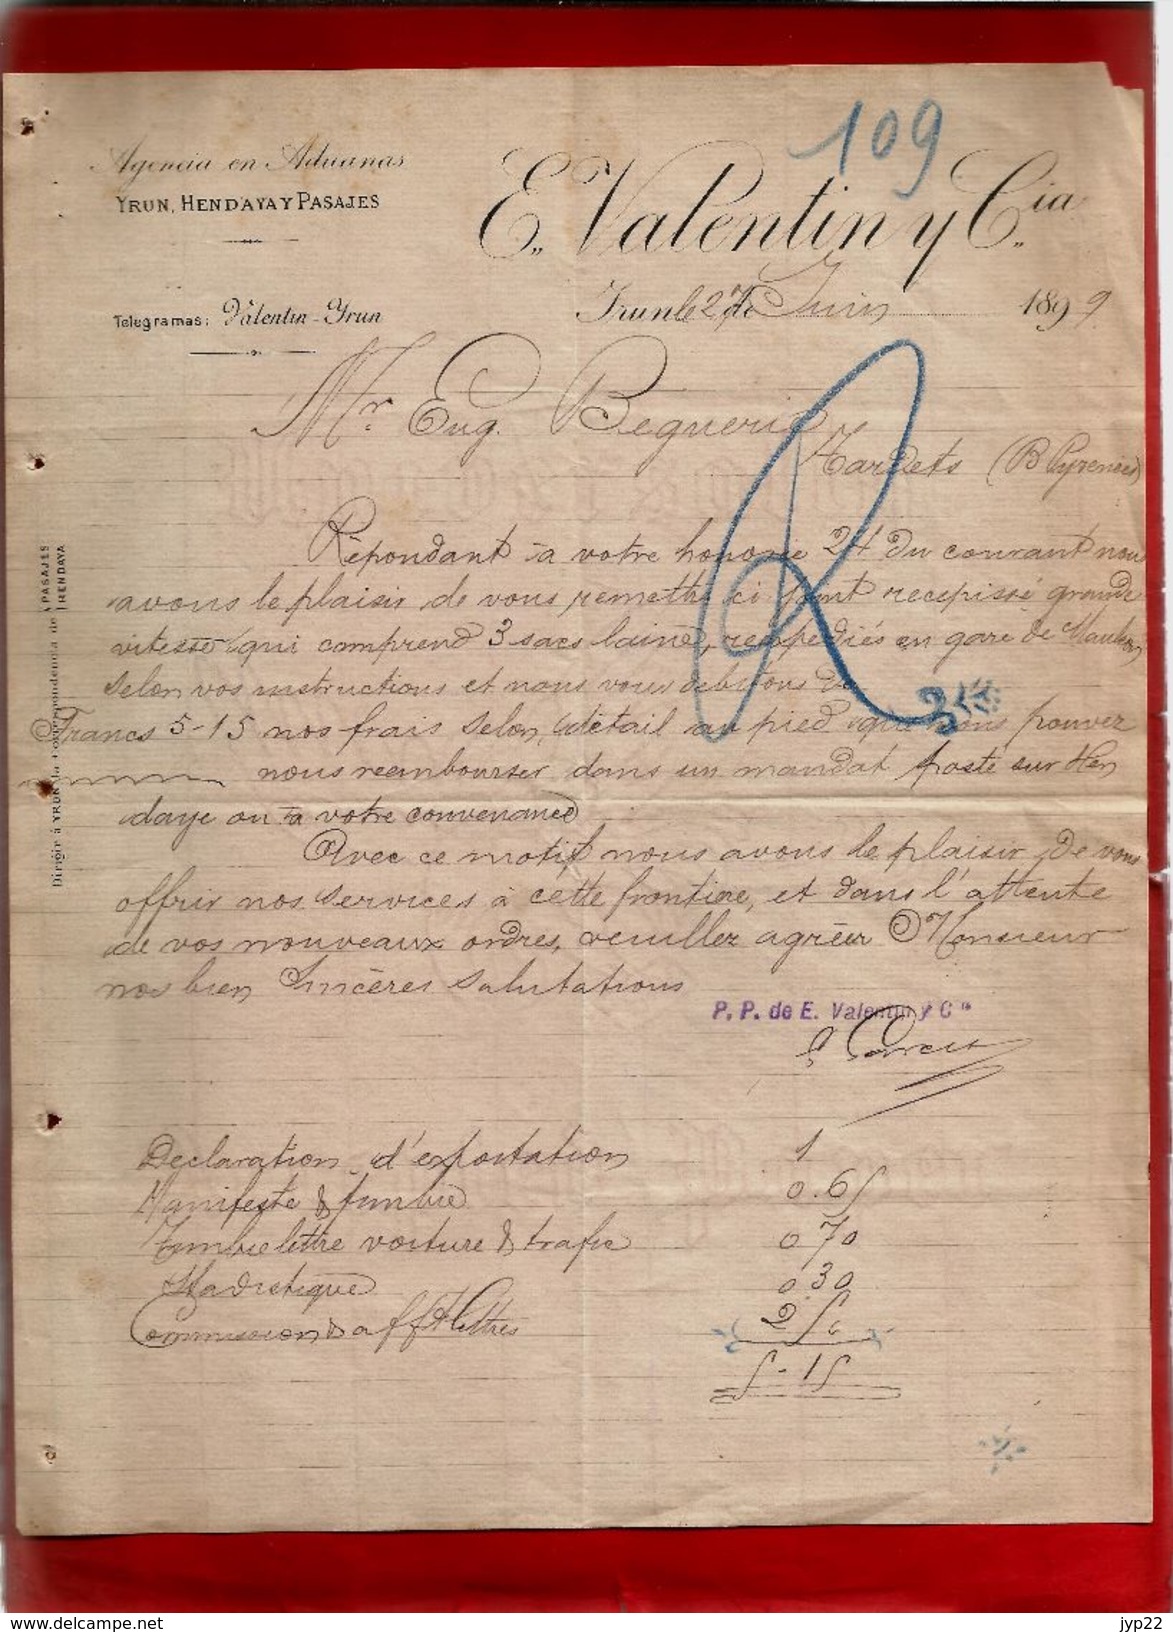 109
Agencia en Aduanas
YRUN, HENDAYA Y PASAJES
E. Valentin y Cia
Telegramas: Valentin-Yrun
Irun le 27 de Juin 1899
Mr Eug. Beguerie
Tardets (B Pyrenées)
Répondant à votre honorée 24 du courant nous
avons le plaisir de vous remettre ci joint recepissé grande
vitesse qui comprend 3 sacs laine, reexpediés en gare de Mauleon
selon vos instructions et nous vous debitons de
Francs 5-15 nos frais selon détail au pied que vous pouvez
nous rembourser dans un mandat poste sur Hen
daye ou à votre convenance
Avec ce motif nous avons le plaisir de vous
offrir nos services à cette frontière, et dans l'attente
de vos nouveaux ordres, veuillez agréer Monsieur
nos bien sincères salutations
P. P. de E. Valentin y Cia
Declaration d'exportation 1
Manifeste & timbre 0.65
Timbre lettre voiture & trafic 0 70
Stadistique 0 30
Commission & aff lettres 2 50
5-15
Dirigir à YRUN la correspondencia de PASAJES
HENDAYA
www.delcampe.net
jyp22